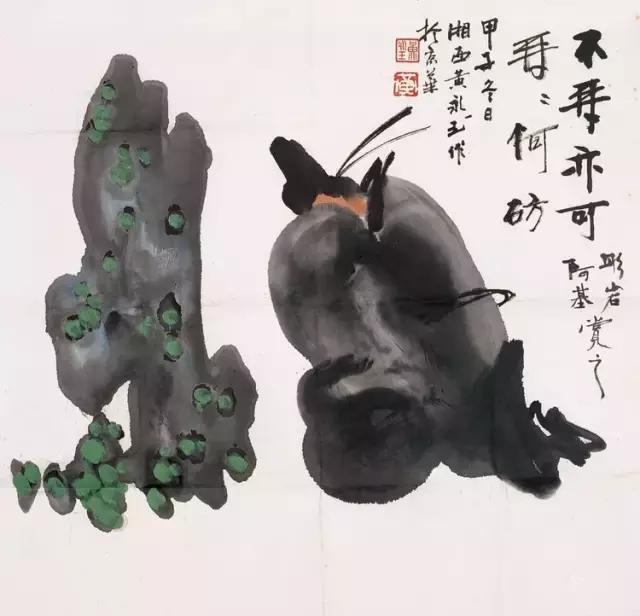 不拜亦可
拜々何妨
岩
阿基賞之
甲子冬日
湘西黄永玉作
於京華